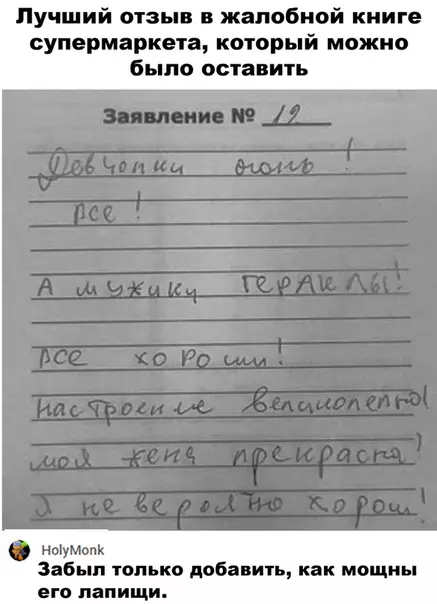 Лучший отзыв в жалобной книге
супермаркета, который можно
было оставить
Заявление № 19
Девчонки огонь!
Все!
А мужики ГЕРАКЛЫ!
все хороши!
настроение великолепно!
моя жена прекрасна!
Я не вероятно хорош!
HolyMonk
Забыл только добавить, как мощны
его лапищи.